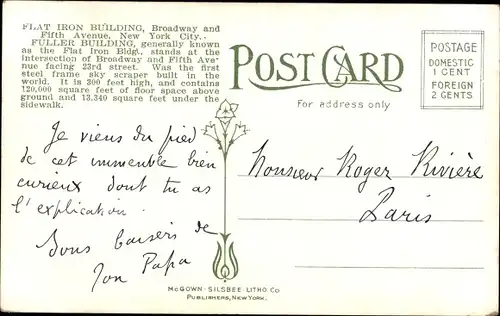 FLAT IRON BUILDING, Broadway and
Fifth Avenue, New York City.
FULLER BUILDING, generally known
as the Flat Iron Bldg., stands at the
intersection of Broadway and Fifth Ave-
nue facing 23rd street. Was the first
steel frame sky scraper built in the
world. It is 300 feet high, and contains
120,000 square feet of floor space above
ground and 13,340 square feet under the
sidewalk.
POST CARD
For address only
POSTAGE
DOMESTIC
1 CENT
FOREIGN
2 CENTS
Je viens du pied
de cet immeuble bien
curieux dont tu as
l'explication.
Bons baisers de
Ton Papa
Monsieur Roger Rivière
Paris
McGOWN-SILSBEE-LITHO.CO
PUBLISHERS, NEW YORK.